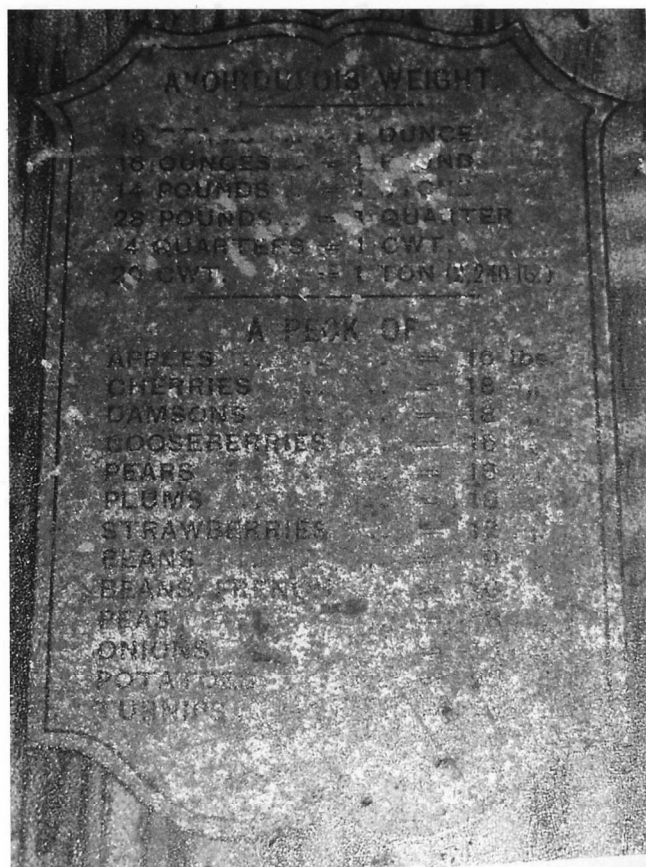 AVOIRDUPOIS WEIGHT
16 = 1 OUNCE
16 OUNCES = 1 POUND
14 POUNDS = 1
28 POUNDS .. = 1 QUARTER
4 QUARTERS = 1 CWT.
20 CWT. .. = 1 TON (2,240 lbs.)
A PECK OF
APPLES .. .. .. = 16 lbs.
CHERRIES .. .. = 18 „
DAMSONS .. .. = 18 „
GOOSEBERRIES .. = 18 „
PEARS .. .. = 18 „
PLUMS .. .. =
STRAWBERRIES .. = 12 „
BEANS .. .. =
BEANS, FRENCH
PEAS
ONIONS
POTATOES
TURNIPS